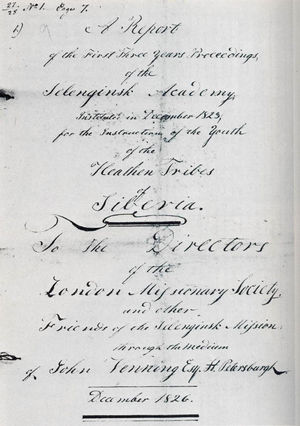 27/28 No 1. Enger 7.
1) A Report
of the First Three Years Proceedings,
of the
Selenginsk Academy,
Instituted in December 1823,
for the Instruction of the Youth
of the
Heathen Tribes
of
Siberia.
To the Directors
of the
London Missionary Society,
and other
Friends of the Selenginsk Mission
through the medium
of John Venning Esq. St. Petersburgh.
December 1826.